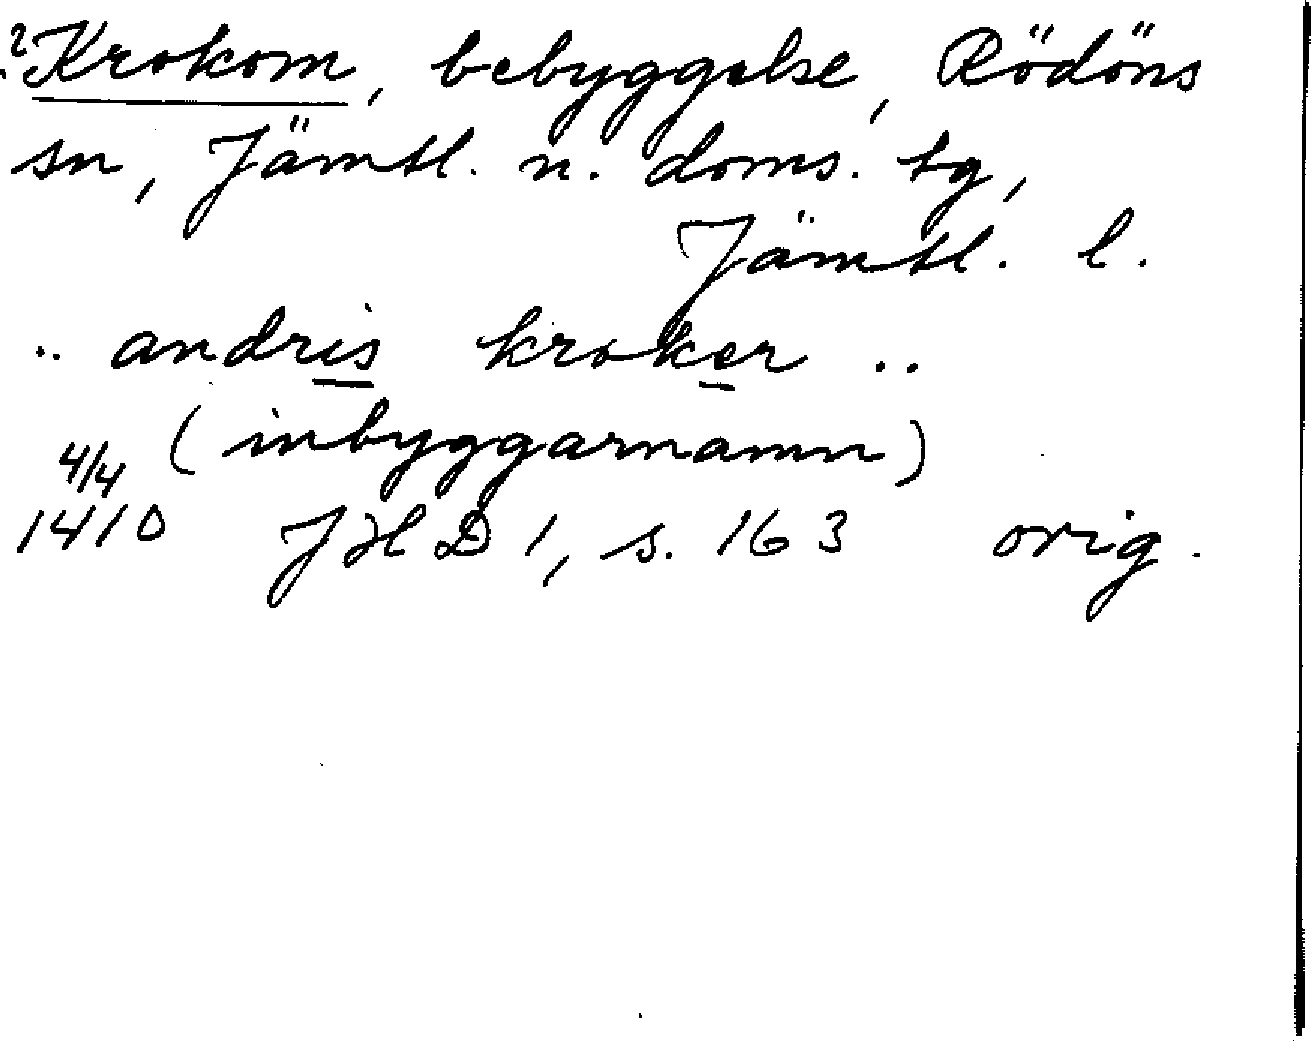 ?Krokom, bebyggelse, Rödöns
sn, Jämtl. n. doms. tg,
Jämtl. l.
.. andris kroker ..
(inbyggarnamn)
4/4
1410 JHD 1, s. 163 orig.